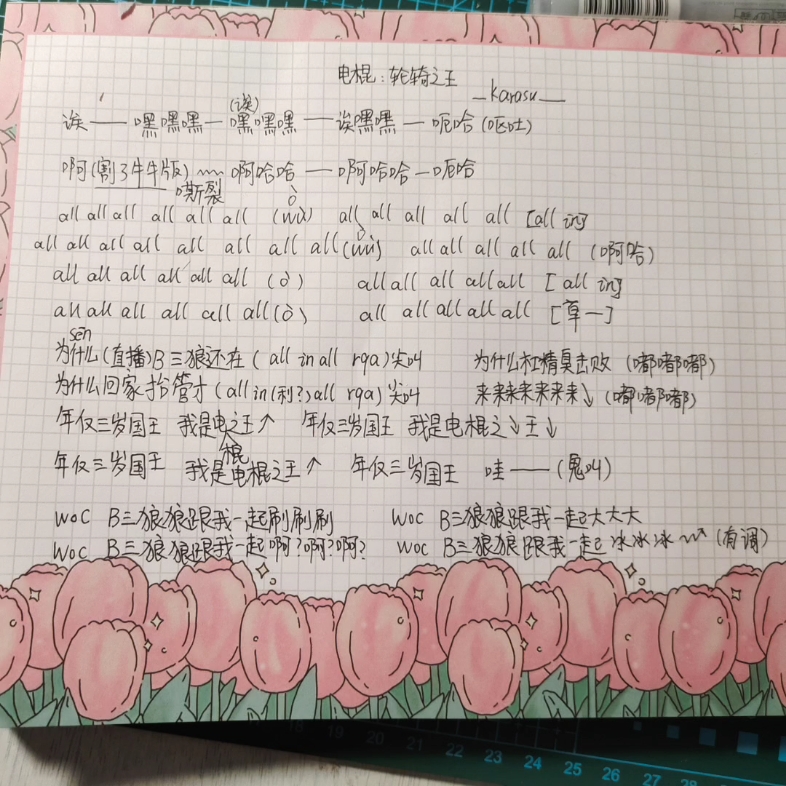 电棍:轮椅之王
—karasu—
诶——嘿嘿嘿—嘿嘿嘿(诶)——诶嘿嘿—呃哈(呕吐)
啊(割了牛牛版)~~啊哈哈—啊哈哈—呃哈
嘶裂
all all all all all all (wù) ò all all all all all [all in]
all all all all all all all all (wù) ò all all all all all (啊哈)
all all all all all all (ò) all all all all all [all in]
all all all all all all (ò) all all all all all [草一]
sen
为什么(直播)B三狼还在(all in all rqa)尖叫 为什么杠精臭击败(嘟嘟嘟)
为什么回家抬管才(all in(利?)all rqa)尖叫 来来来来来来来↓(嘟嘟嘟)
年仅三岁国王 我是电之王↗ 年仅三岁国王 我是电棍之↘王↓
棍
年仅三岁国王 我是电棍之王↗ 年仅三岁国王 哇——(鬼叫)
woc B三狼狼跟我一起刷刷刷 woc B三狼狼跟我一起大大大
woc B三狼狼跟我一起啊?啊?啊? woc B三狼狼跟我一起冰冰冰~~(有调)
18 19 20 21 22 23 24 25 26 27 28